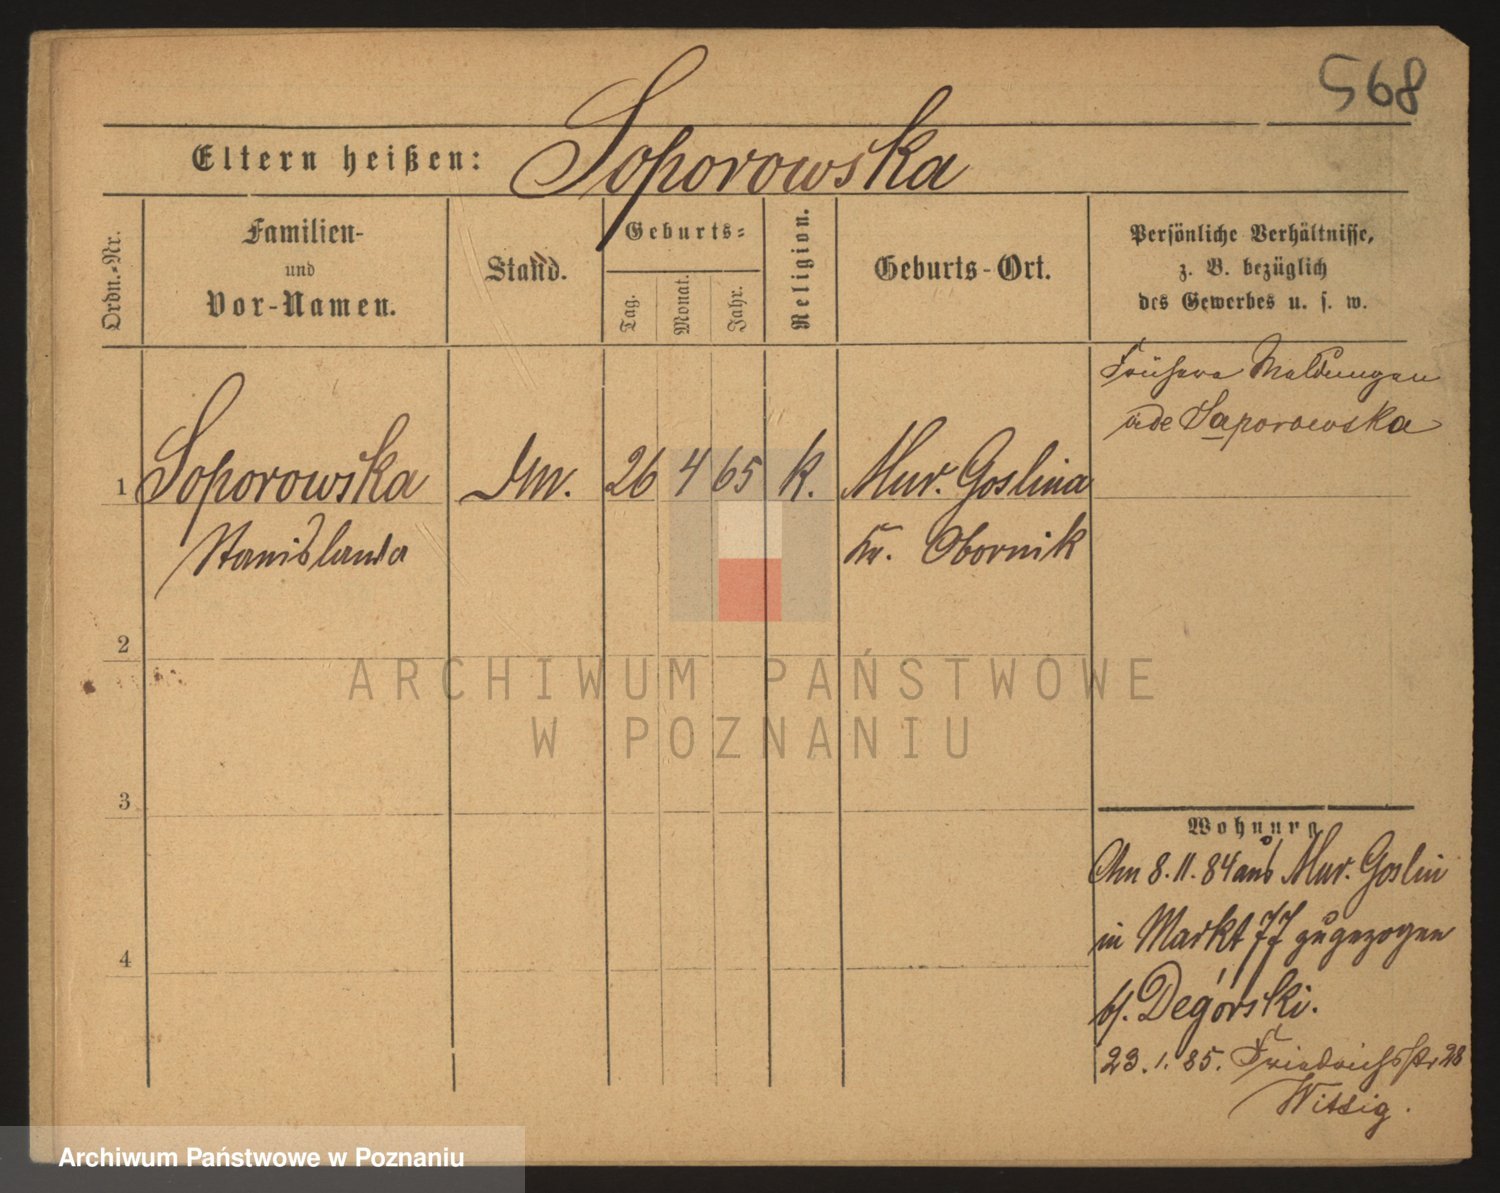 568
Eltern heißen: Soporowska
Ordn.-Nr.
Familien-
und
Vor-Namen.
Stand.
Geburts-
Tag.
Monat.
Jahr.
Religion.
Geburts-Ort.
Persönliche Verhältnisse,
z. B. bezüglich
des Gewerbes u. s. w.
Frühere Meldungen
vide Saporowska
1 Soporowska 26 4 65 k. Mur. Goslina
Stanislawa Kr. Obornik
2
3
4
Wohnung
Am 8.11.84 aus Mur. Goslin
in Markt 77 zugezogen
b/. Degórski.
23.1.85. Friedrichsstr 28
Wittig.
ARCHIWUM PAŃSTWOWE
W POZNANIU
Archiwum Państwowe w Poznaniu